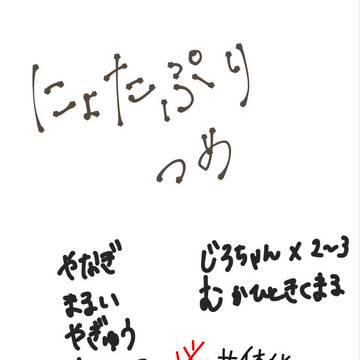 にょたぷり
つめ
やなぎ
まるい
やぎゅう
じろちゃん×2〜3
むかひときくまる